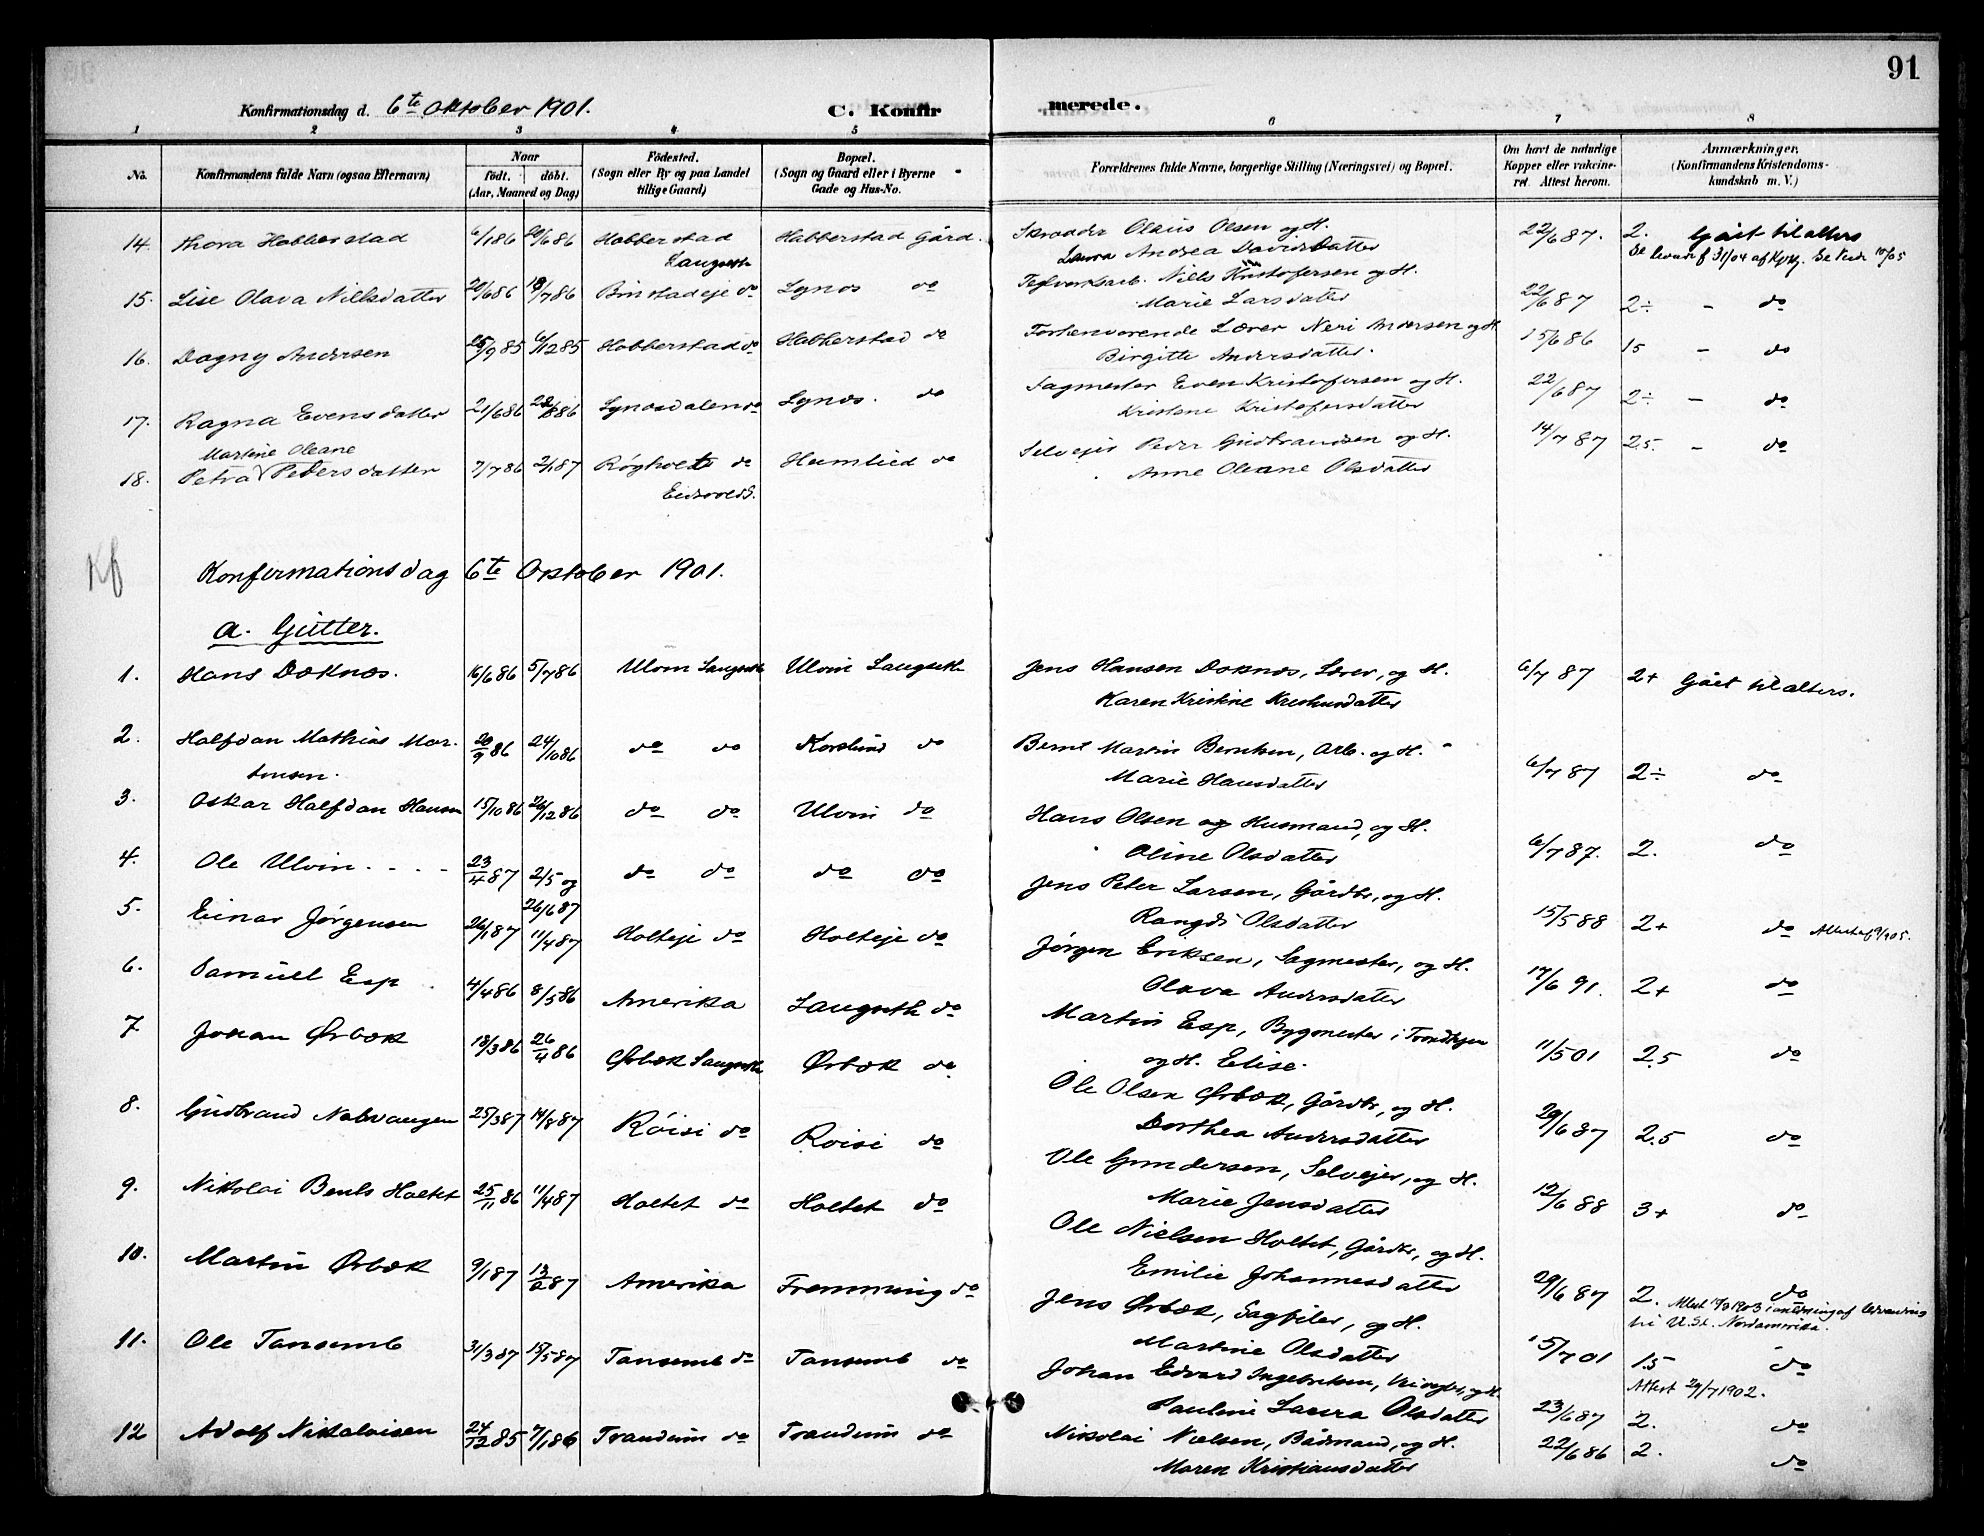 91
Konfirmationsdag d. 6te oktober 1901. C. Konfirmerede.
1 2 3 4 5 6 7 8
No. Konfirmandens fulde Navn (ogsaa Efternavn) Naar født. døbt. (Aar, Maaned og Dag) Fødested. (Sogn eller By og paa Landet tillige Gaard) Bopæl. (Sogn og Gaard eller i Byerne Gade og Hus-No. Forældrenes fulde Navne, borgerlige Stilling (Næringsvei) og Bopæl. Om havt de naturlige Kopper eller vakcineret. Attest herom. Anmærkninger. (Konfirmandens Kristendomskundskab m. V.)
14. Thora Habberstad 6/1 86 20/6 86 Habberstad Langseth Habberstad Gård. Skrædder Olaus Olsen og H. 22/6 87. 2. Gået til alters
Laura Andrea Davidsdatter
15. Lise Olava Nilsdatter 20/6 86 18/7 86 Binstadeje do Lynæs do Teglverksarb. Niels Kristofersen og H.
Marie Larsdatter 22/6 87 2÷ — do
16. Dagny Andersen 25/9 85 6/12 85 Habberstad do Habberstad do Forhenværende Lærer Neri Andersen og H. 15/6 86 15 — do
Birgitte Andersdatter.
17. Ragna Evensdatter 21/6 86 22/8 86 Lynæsdalen do Lynæs. do Sagmester Even Kristofersen og H. 22/6 87 2÷ — do
Kristene Kristofersdatter
Martine Oleane
18. Petra Pedersdatter 7/7 86 2/1 87 Røgholtet do Humlied do Selvejer Peder Gudbrandsen og H. 14/7 87 2.5. — do
Eidsvold S. Anne Oleane Olsdatter
Kf
Konfirmationsdag 6te Oktober 1901.
a. Gutter.
1. Hans Doknæs. 16/6 86 5/7 86 Ulvin Langseth Ulvin Langseth Jens Hansen Doknæs, Lærer, og H. 6/7 87 2+ Gået til alters.
Karen Kristine Kristiansdatter
2. Halfdan Mathias Mor- 20/9 86 24/10 86 do do Korslund do Bernt Martin Berntsen, Arb. og H.
tensen. Marie Hansdatter 6/7 87 2÷ do
3. Oskar Halfdan Hansen 15/10 86 26/12 86 do do Ulvin do Hans Olsen og Husmand, og H.
Oline Olsdatter 6/7 87. 2. do
4. Ole Ulvin. - - - 23/4 87 2/5 og do do do do Jens Peter Larsen, Gårdbr., og H.
26/6 87 Rangdi Olsdatter 15/5 88 2+ do
5. Einar Jørgensen 26/1 87 11/4 87 Holteje do Holteje do Jørgen Eriksen, Sagmester, og H.
Olava Andersdatter 17/6 91. 2+ do
6. Samuel Esp 4/4 86 8/5 86 Amerika Langseth do Martin Esp, Bygmester i Trondhjem
og H. Elise. 11/5 01 2.5 do
7 Johan Ørbæk 18/3 86 26/4 86 Ørbæk Langseth Ørbæk do Ole Olsen Ørbæk, Gårdbr., og H.
Dorthea Andersdatter 29/6 87 2.5 do
8. Gudbrand Nabvangen 25/3 87 14/8 87 Røisi do Roisi do Ole Gundersen, Selvejer, og H.
Marie Jensdatter 12/6 88 3+ do
9. Nikolai Bents Holtet 25/11 86 11/4 87 Holtet do Holtet do Ole Nielsen Holtet, Gårdbr., og H.
Emilie Johannesdatter 29/6 87 2. do
10. Martin Ørbæk 9/1 87 13/2 87 Amerika Fremming do Jens Ørbæk, Sagfiler, og H.
til U. St. Nordamerika.
Martine Olsdatter 15/7 01 1.5 do
11. Ole Tansemb 31/3 87 15/5 87 Tansemb do Tansemb do Johan Edvard Ingebretsen, og H.
Attest 29/7 1902.
Pauline Laura Olsdatter 23/6 87 2. do
12 Adolf Nikolaisen 24/12 85 7/1 86 Trandum do Trandum do Nikolai Nielsen, Bådmand, og H. 22/6 86 2. do
Maren Kristiansdatter